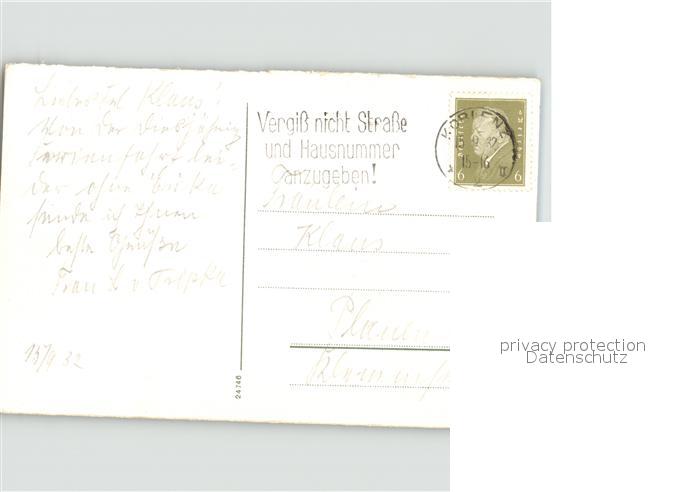 Liebes Frl. Klaus!
Von der diesjährig.
Ferienfahrt lei-
der ohne
sende ich Ihnen
beste Grüße
Frau
15/9 32
Vergiß nicht Straße
und Hausnummer
anzugeben!
KOBLENZ
15-16
DEUTSCHES REICH
6 6
Fräulein
Klaus
Plauen
24746
privacy protection
Datenschutz